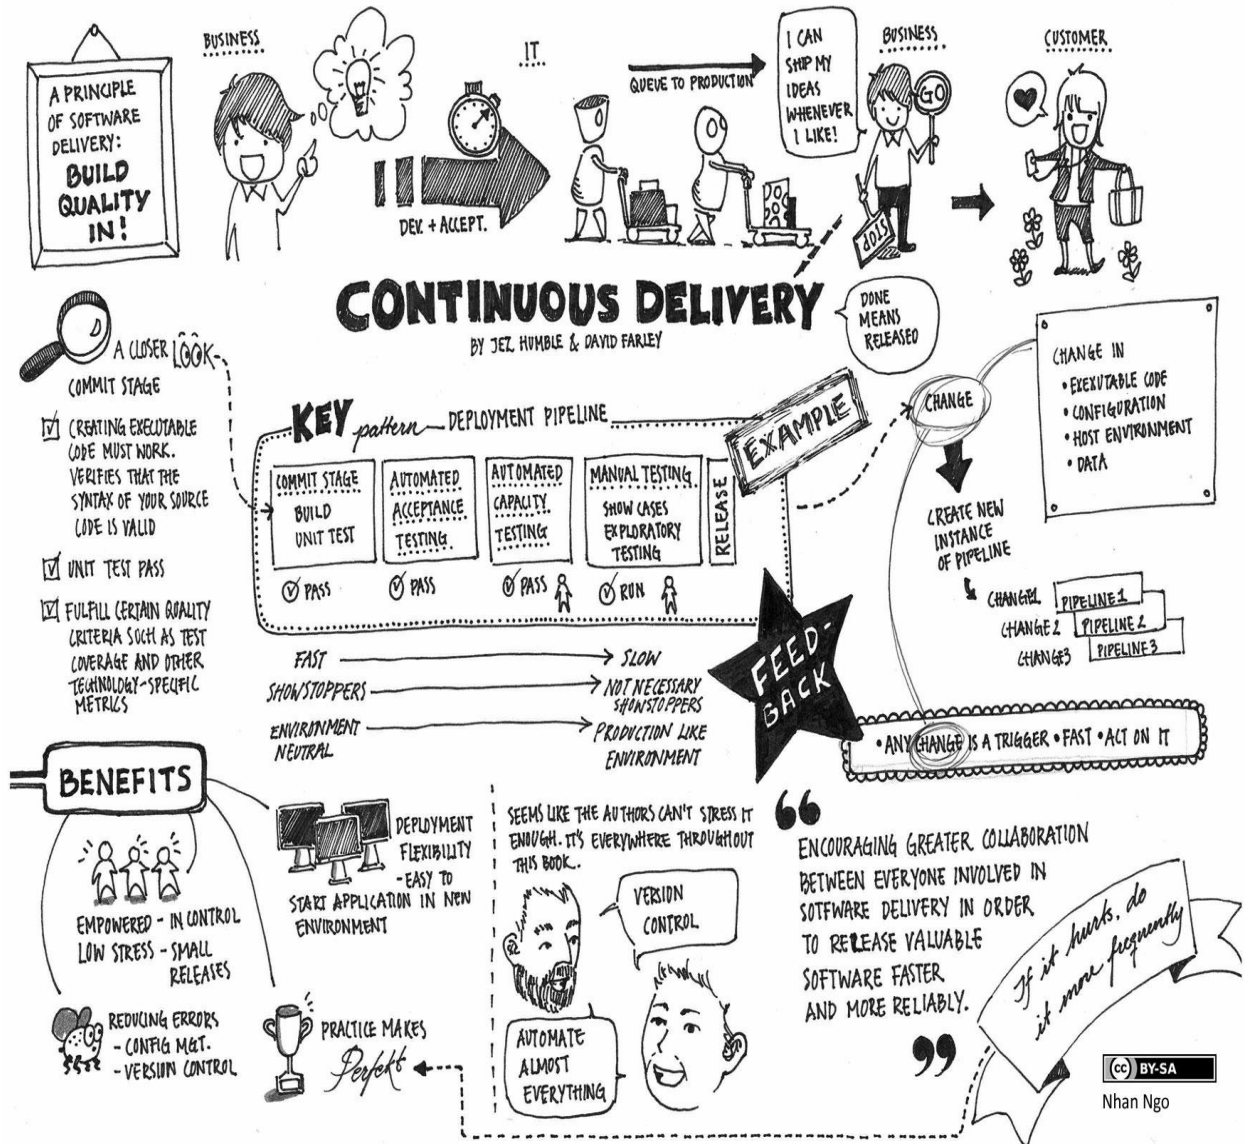 A PRINCIPLE
OF SOFTWARE
DELIVERY:
BUILD
QUALITY
IN!
BUSINESS
IT
DEV. + ACCEPT.
QUEUE TO PRODUCTION
I CAN
SHIP MY
IDEAS
WHENEVER
I LIKE!
BUSINESS
GO
STOP
CUSTOMER
CONTINUOUS DELIVERY
BY JEZ HUMBLE & DAVID FARLEY
DONE
MEANS
RELEASED
A CLOSER LOOK
COMMIT STAGE
CREATING EXECUTABLE
CODE MUST WORK.
VERIFIES THAT THE
SYNTAX OF YOUR SOURCE
CODE IS VALID
UNIT TEST PASS
FULFILL CERTAIN QUALITY
CRITERIA SUCH AS TEST
COVERAGE AND OTHER
TECHNOLOGY-SPECIFIC
METRICS
KEY pattern DEPLOYMENT PIPELINE
EXAMPLE
COMMIT STAGE
BUILD
UNIT TEST
PASS
AUTOMATED
ACCEPTANCE
TESTING
PASS
AUTOMATED
CAPACITY
TESTING
PASS
MANUAL TESTING
SHOW CASES
EXPLORATORY
TESTING
RUN
RELEASE
FAST
SLOW
SHOWSTOPPERS
NOT NECESSARY
SHOWSTOPPERS
ENVIRONMENT
NEUTRAL
PRODUCTION LIKE
ENVIRONMENT
FEED-
BACK
CHANGE
CHANGE IN
• EXEXUTABLE CODE
• CONFIGURATION
• HOST ENVIRONMENT
• DATA
CREATE NEW
INSTANCE
OF PIPELINE
CHANGE1 PIPELINE1
CHANGE2 PIPELINE2
CHANGE3 PIPELINE3
• ANY CHANGE IS A TRIGGER • FAST • ACT ON IT
BENEFITS
EMPOWERED - IN CONTROL
LOW STRESS - SMALL
RELEASES
REDUCING ERRORS
- CONFIG MGT.
- VERSION CONTROL
DEPLOYMENT
FLEXIBILITY
- EASY TO
START APPLICATION IN NEW
ENVIRONMENT
PRACTICE MAKES
Perfekt
SEEMS LIKE THE AUTHORS CAN'T STRESS IT
ENOUGH. IT'S EVERYWHERE THROUGHOUT
THIS BOOK..
VERSION
CONTROL
AUTOMATE
ALMOST
EVERYTHING
“
ENCOURAGING GREATER COLLABORATION
BETWEEN EVERYONE INVOLVED IN
SOTFWARE DELIVERY IN ORDER
TO RELEASE VALUABLE
SOFTWARE FASTER
AND MORE RELIABLY.
”
If it hurts, do
it more frequently
cc BY-SA
Nhan Ngo